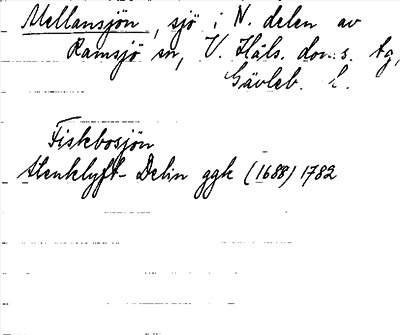 Mellansjön, sjö i N. delen av
Ramsjö sn, V. Häls. dom.s. tg,
Gävleb. l.
Fiskbosjön
Stenklyft- Delin ggk (1688) 1782